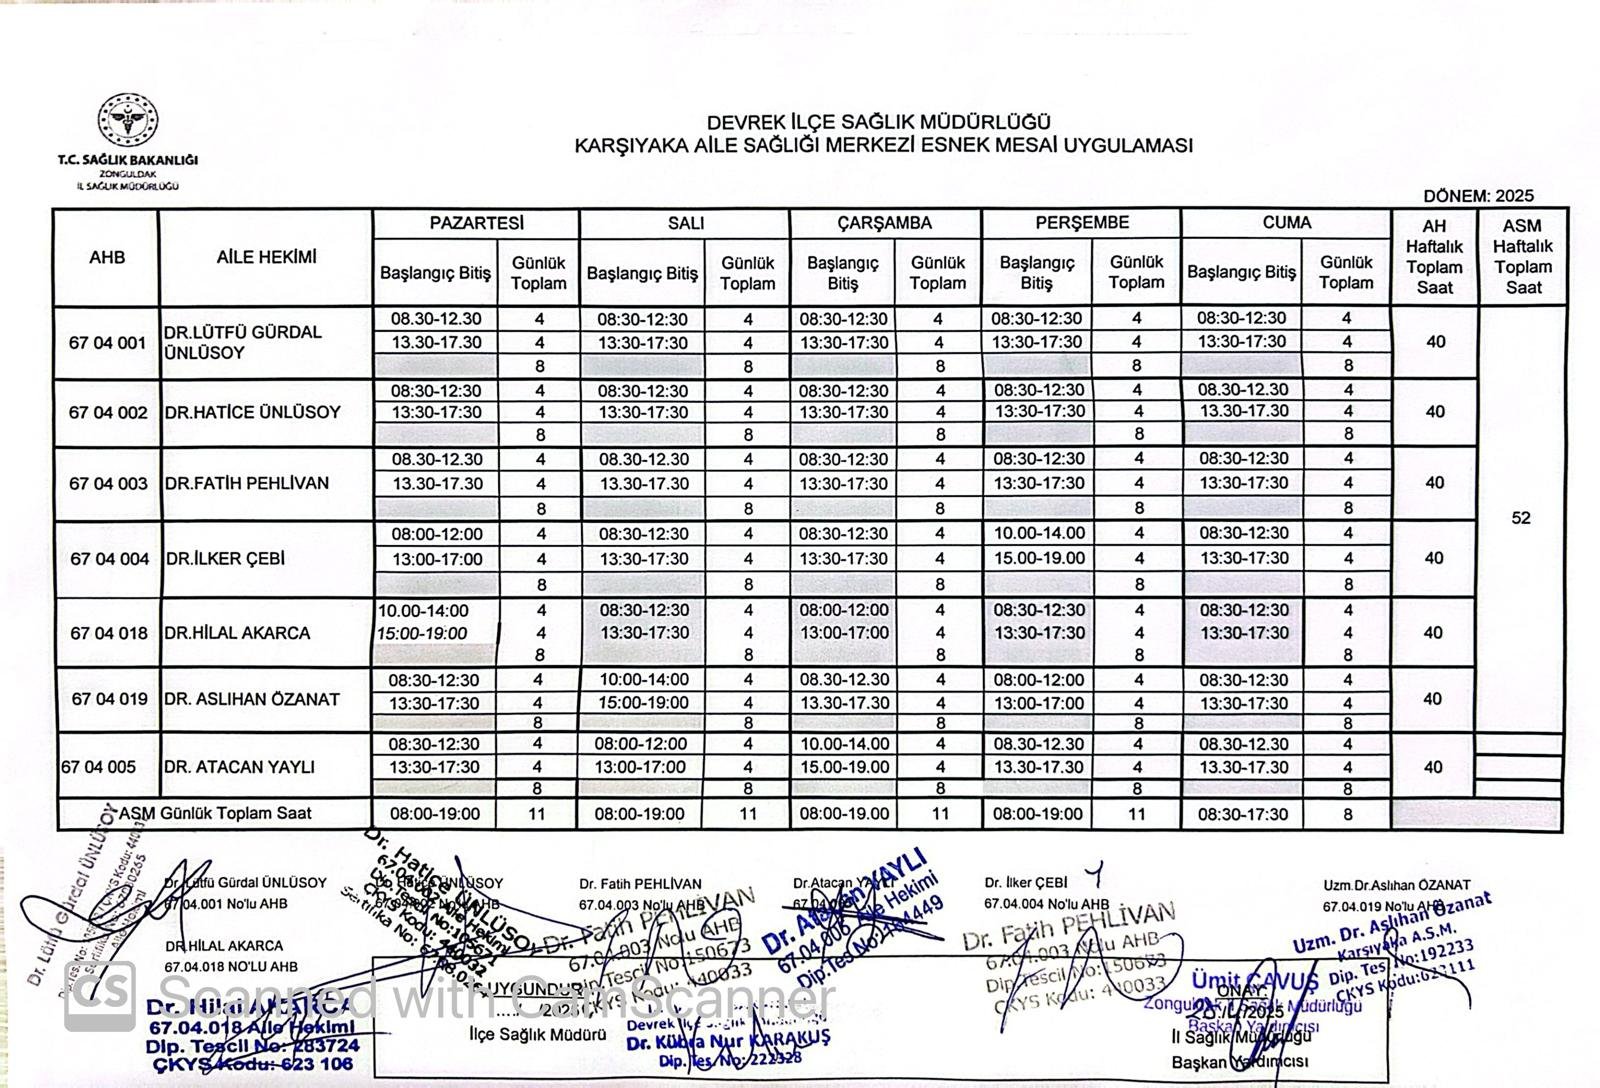 T.C. SAĞLIK BAKANLIĞI
ZONGULDAK
İL SAĞLIK MÜDÜRLÜĞÜ
DEVREK İLÇE SAĞLIK MÜDÜRLÜĞÜ
KARŞIYAKA AİLE SAĞLIĞI MERKEZİ ESNEK MESAİ UYGULAMASI
DÖNEM: 2025
AHB AİLE HEKİMİ PAZARTESİ SALI ÇARŞAMBA PERŞEMBE CUMA AH Haftalık Toplam Saat ASM Haftalık Toplam Saat
Başlangıç Bitiş Günlük Toplam Başlangıç Bitiş Günlük Toplam Başlangıç Bitiş Günlük Toplam Başlangıç Bitiş Günlük Toplam Başlangıç Bitiş Günlük Toplam
67 04 001 DR.LÜTFÜ GÜRDAL ÜNLÜSOY
08.30-12.30 4 08:30-12:30 4 08:30-12:30 4 08:30-12:30 4 08:30-12:30 4
13.30-17.30 4 13:30-17:30 4 13:30-17:30 4 13:30-17:30 4 13:30-17:30 4 40
8 8 8 8 8
67 04 002 DR.HATİCE ÜNLÜSOY
08:30-12:30 4 08:30-12:30 4 08:30-12:30 4 08:30-12:30 4 08.30-12.30 4
13:30-17:30 4 13:30-17:30 4 13:30-17:30 4 13:30-17:30 4 13.30-17.30 4 40
8 8 8 8 8
67 04 003 DR.FATİH PEHLİVAN
08.30-12.30 4 08.30-12.30 4 08:30-12:30 4 08:30-12:30 4 08:30-12:30 4
13.30-17.30 4 13.30-17.30 4 13:30-17:30 4 13:30-17:30 4 13:30-17:30 4 40
8 8 8 8 8
52
67 04 004 DR.İLKER ÇEBİ
08:00-12:00 4 08:30-12:30 4 08:30-12:30 4 10.00-14.00 4 08:30-12:30 4
13:00-17:00 4 13:30-17:30 4 13:30-17:30 4 15.00-19.00 4 13:30-17:30 4 40
8 8 8 8 8
67 04 018 DR.HİLAL AKARCA
10.00-14:00 4 08:30-12:30 4 08:00-12:00 4 08:30-12:30 4 08:30-12:30 4
15:00-19:00 4 13:30-17:30 4 13:00-17:00 4 13:30-17:30 4 13:30-17:30 4 40
8 8 8 8 8
67 04 019 DR. ASLIHAN ÖZANAT
08:30-12:30 4 10:00-14:00 4 08.30-12.30 4 08:00-12:00 4 08:30-12:30 4
13:30-17:30 4 15:00-19:00 4 13.30-17.30 4 13:00-17:00 4 13:30-17:30 4 40
8 8 8 8 8
67 04 005 DR. ATACAN YAYLI
08:30-12:30 4 08:00-12:00 4 10.00-14.00 4 08.30-12.30 4 08.30-12.30 4
13:30-17:30 4 13:00-17:00 4 15.00-19.00 4 13.30-17.30 4 13.30-17.30 4 40
8 8 8 8 8
ASM Günlük Toplam Saat 08:00-19:00 11 08:00-19:00 11 08:00-19.00 11 08:00-19:00 11 08:30-17:30 8
Dr. Lütfü Gürdal ÜNLÜSOY
67.04.001 No'lu AHB
Dr. Lütfü Gürdal ÜNLÜSOY
ÜNLÜSOY
Dr. Hatice ÜNLÜSOY
Dr. Fatih PEHLİVAN
67.04.003 No'lu AHB
Dr. Fatih PEHLİVAN
67.04.003 Nolu AHB
Dip.Tescil No:150673
ÇKYS Kodu: 440033
Dr.Atacan YAYLI
Dr. Atacan YAYLI
Aile Hekimi
Dr. İlker ÇEBİ
67.04.004 No'lu AHB
Dr. Fatih PEHLİVAN
67.04.003 Nolu AHB
Dip.Tescil No:150673
ÇKYS Kodu: 440033
Uzm.Dr.Aslıhan ÖZANAT
67.04.019 No'lu AHB
Uzm. Dr. Aslıhan Özanat
Karşıyaka A.S.M.
Dip. Tes. No:192233
ÇKYS Kodu:623111
DR.HİLAL AKARCA
67.04.018 NO'LU AHB
Dr. Hilal AKARCA
67.04.018 Aile Hekimi
Dip. Tescil No: 283724
ÇKYS Kodu: 623 106
UYGUNDUR
İlçe Sağlık Müdürü
Dr. Kübra Nur KARAKUŞ
Dip.Tes.No:222328
Ümit ÇAVUŞ
Zonguldak İl Sağlık Müdürlüğü
Başkan Yardımcısı
ONAY
İl Sağlık Müdürlüğü
Başkan Yardımcısı
CS Scanned with CamScanner